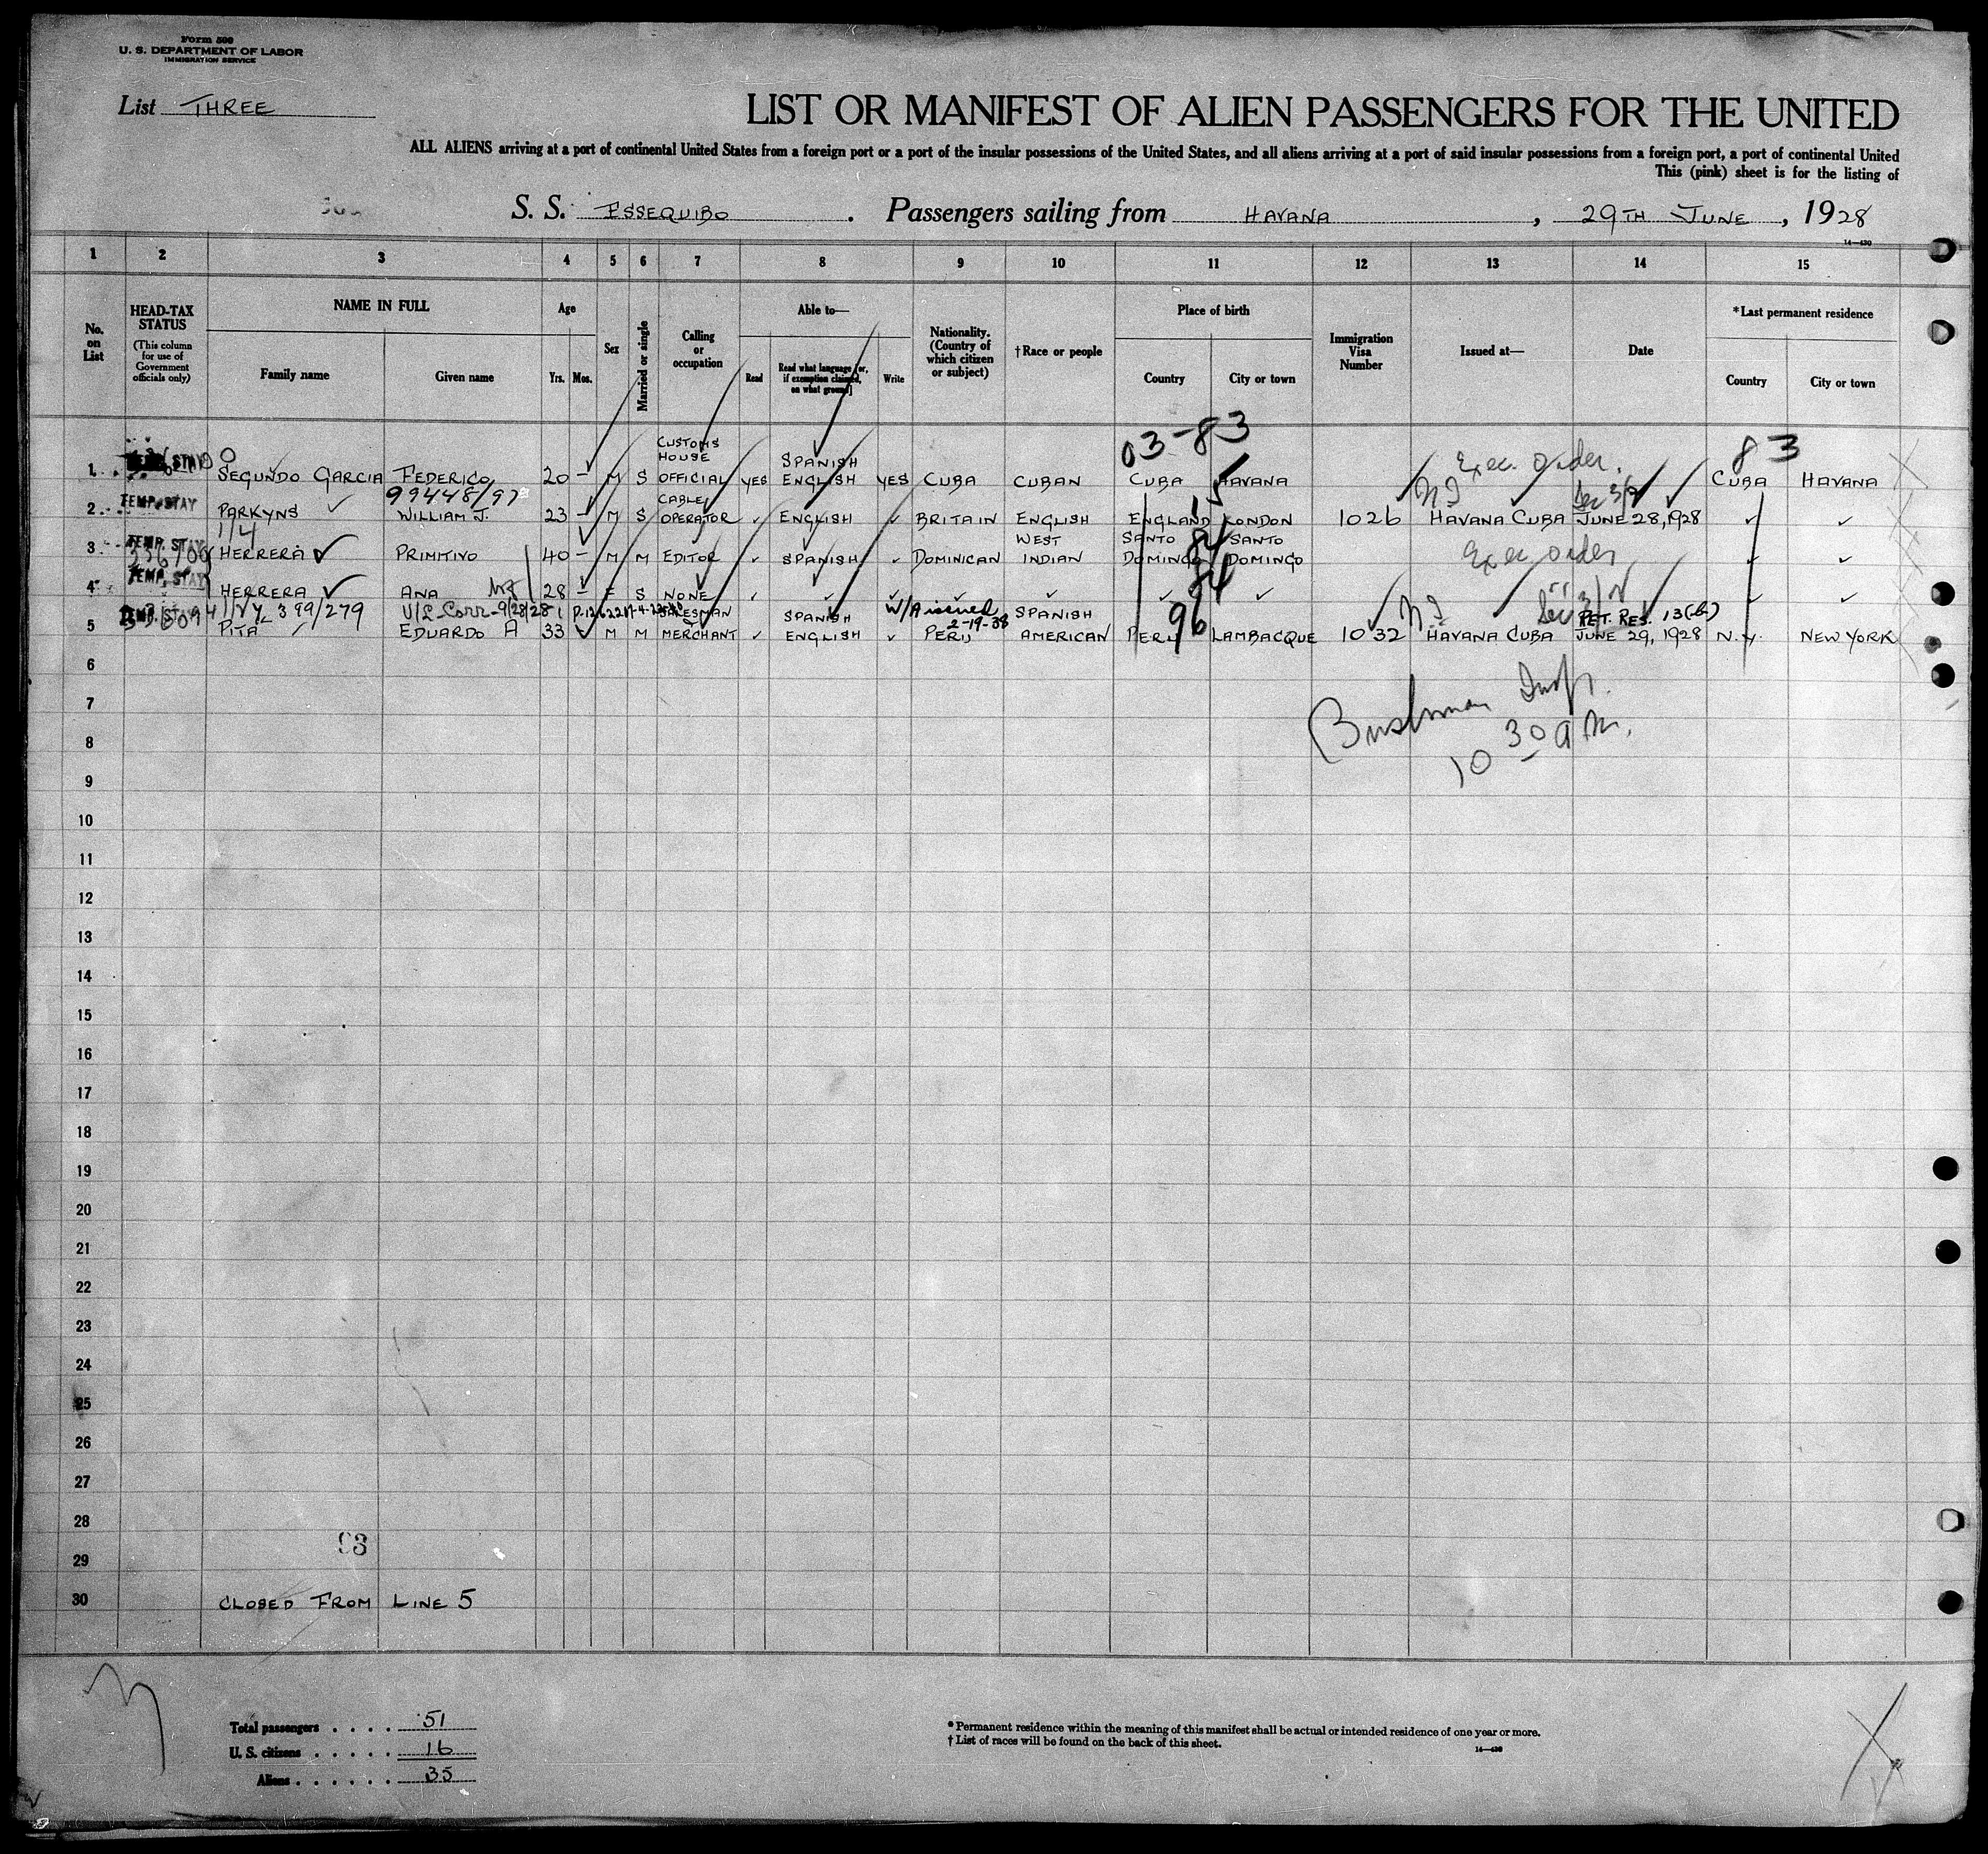 Form 500
U. S. DEPARTMENT OF LABOR
IMMIGRATION SERVICE
List THREE
LIST OR MANIFEST OF ALIEN PASSENGERS FOR THE UNITED
ALL ALIENS arriving at a port of continental United States from a foreign port or a port of the insular possessions of the United States, and all aliens arriving at a port of said insular possessions from a foreign port, a port of continental United
This (pink) sheet is for the listing of
S. S. ESSEQUIBO. Passengers sailing from HAVANA, 29TH JUNE, 1928
14—430
1 2 3 4 5 6 7 8 9 10 11 12 13 14 15
No. on List
HEAD-TAX STATUS (This column for use of Government officials only)
NAME IN FULL
Family name Given name
Age
Yrs. Mos.
Sex
Married or single
Calling or occupation
Able to—
Read Read what language [or, if exemption claimed, on what ground] Write
Nationality. (Country of which citizen or subject)
†Race or people
Place of birth
Country City or town
Immigration Visa Number
Issued at—
Date
*Last permanent residence
Country City or town
03-83
83
1 TEMP. STAY SEGUNDO GARCIA FEDERICO 20 – M S CUSTOMS HOUSE OFFICIAL YES SPANISH ENGLISH YES CUBA CUBAN CUBA HAVANA Exec. Order. CUBA HAVANA
99448/97
2 TEMP. STAY PARKYNS ✓ WILLIAM J. 23 – M S CABLE OPERATOR ✓ ENGLISH ✓ BRITAIN ENGLISH ENGLAND LONDON 1026 HAVANA CUBA JUNE 28, 1928 ✓ ✓
114
3 TEMP. STAY HERRERA ✓ PRIMITIVO 40 – M M EDITOR ✓ SPANISH ✓ DOMINICAN WEST INDIAN SANTO DOMINGO SANTO DOMINGO Exec order ✓ ✓
84
4 TEMP. STAY HERRERA ✓ ANA 28 – F S NONE ✓ ✓ ✓ ✓ ✓ ✓ ✓ ✓ ✓
84
399/279 V/L Corr-9/28/28 W/A issued 2-19-38
RET. RES. 13(b)
5 TEMP. STAY PITA ✓ EDUARDO A 33 ✓ M M SALESMAN MERCHANT ✓ SPANISH ENGLISH ✓ PERU SPANISH AMERICAN PERU 96 LAMBACQUE 1032 HAVANA CUBA JUNE 29, 1928 N.Y. NEW YORK
6
7
Bushman Insp.
8
10 30 a m.
9
10
11
12
13
14
15
16
17
18
19
20
21
22
23
24
25
26
27
28
93
29
30 CLOSED FROM LINE 5
Total passengers . . . . 51
U. S. citizens . . . . . 16
Aliens . . . . . . 35
* Permanent residence within the meaning of this manifest shall be actual or intended residence of one year or more.
† List of races will be found on the back of this sheet.
14—430